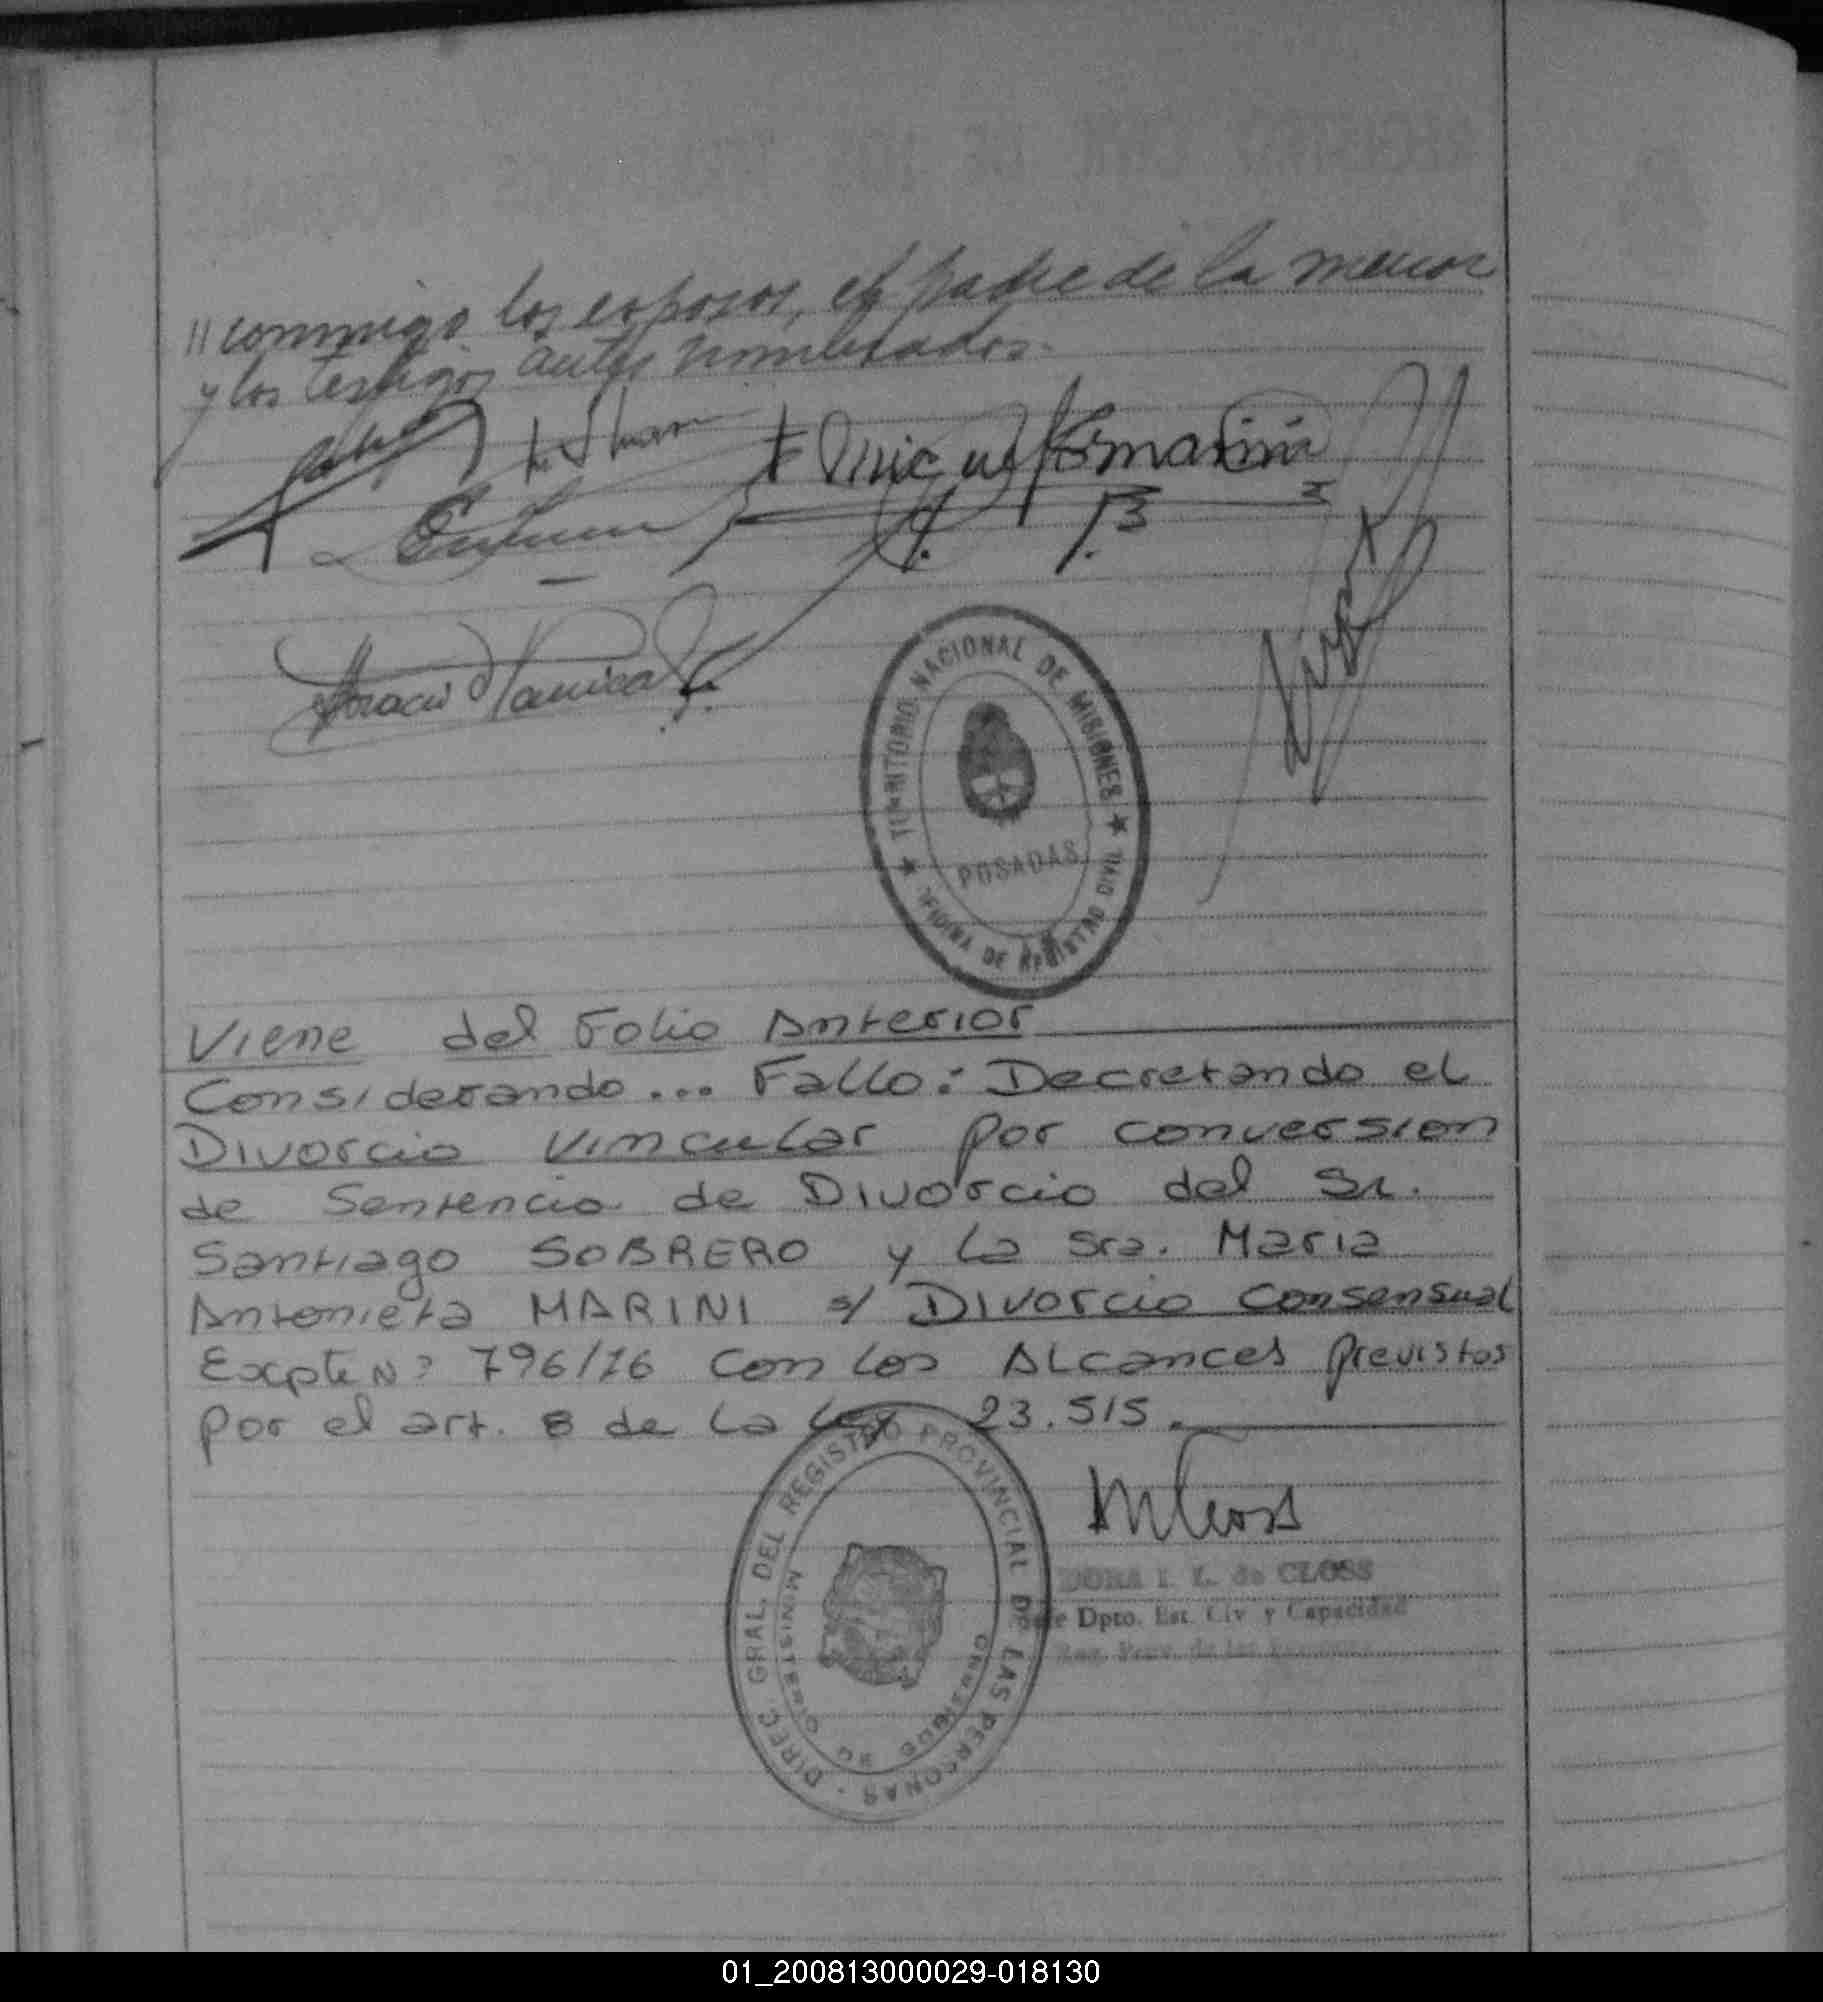 // conmigo los esposos, el padre de la menor
y los testigos antes nombrados.
Horacio
TERRITORIO NACIONAL DE MISIONES
POSADAS
OFICINA DE REGISTRO CIVIL
Viene del Folio Anterior
Considerando... Fallo: Decretando el
Divorcio vincular por conversion
de Sentencia de Divorcio del Sr.
Santiago SOBRERO y la Sra. Maria
Antonieta MARINI s/ Divorcio Consensual
Expte Nº 796/76 con los Alcances previstos
por el art. 8 de la Ley 23.515.
DIREC. GRAL. DEL REGISTRO PROVINCIAL DE LAS PERSONAS
MINISTERIO DE GOBIERNO
DORA I. L. de CLOSS
Jefe Dpto. Est. Civ y Capacidad
Reg. Prov. de las Personas
01_200813000029-018130